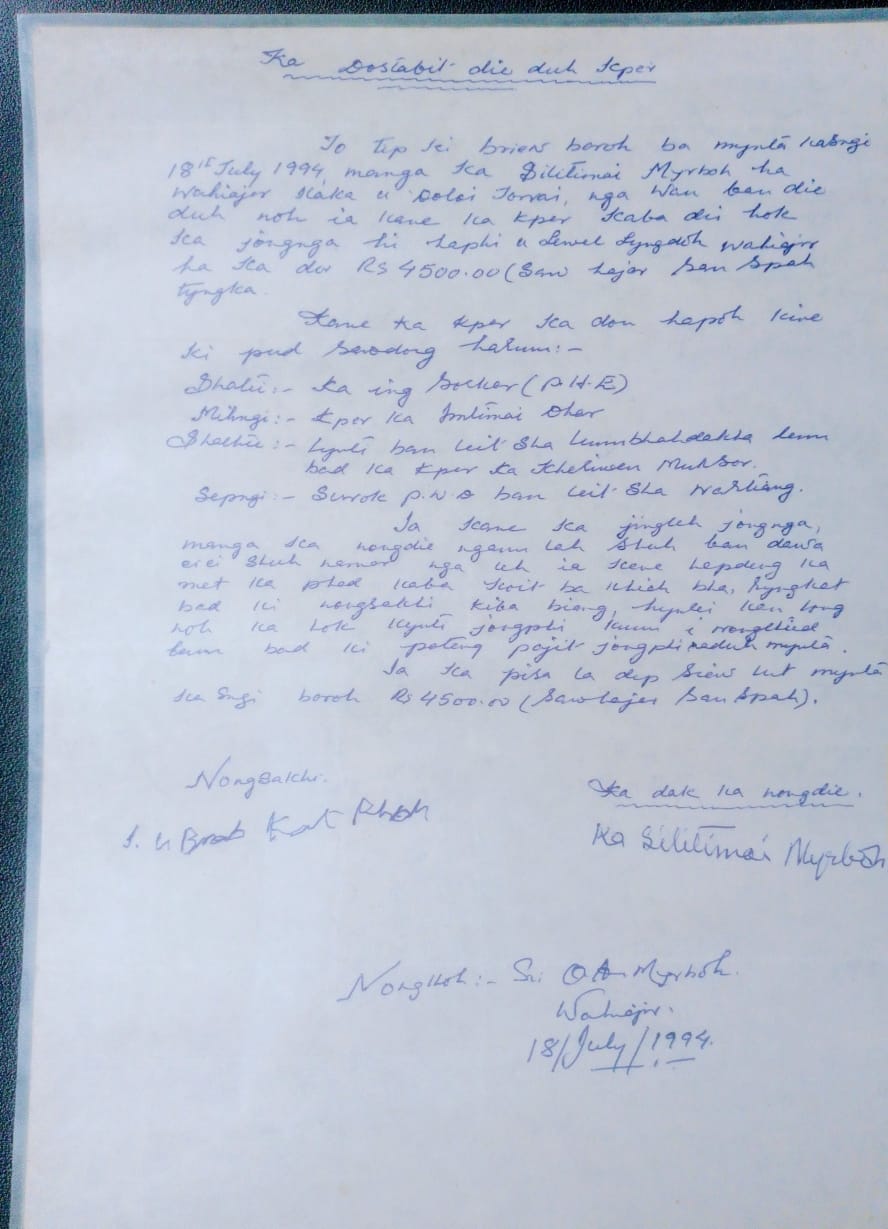 Ka Dostabit die duh kper
To tip ki briew baroh ba mynta ka sngi
18th July 1994, manga Ka Silitimai Myrboh ha
Wahiajer Ilaka u Doloi Jowai, nga wan ban die
duh noh ia kane ka kper kaba dei hok
ka jongnga hi haphi u Lewel Lyngdoh Wahiajer
ha ka dor Rs 4500.00 (Saw hajar San Spah
tyngka.
Kane ka kper ka don hapoh kine
ki pud sawdong harum:-
Shatei:- Ka ing Sorkar (P.H.E)
Mihngi:- Kper ka Imtimai Dhar
Shathie:- Lynti ban leit sha lum
bad ka kper ka Mukhor.
Sepngi:- Surok P.W.D ban leit sha Wahtiang.
Ia kane ka jingleh jongnga,
manga ka nongdie ngam lah shuh ban dawa
eiei shuh namar nga leh ia kane hapdeng ka
met ka phad kaba koit ba khiah bha, ryngkat
bad ki nongsakhi kiba biang, hynrei kan long
noh ka hok kynti jongphi kum i nongthied
lem bad ki pateng pajit jongphi naduh mynta.
Ia ka pisa la dep siew lut mynta
ka sngi baroh Rs 4500.00 (Saw hajar San Spah).
Nongsakhi.
Ka dak ka nongdie.
1. u Kat Rhoh
Ka Silitimai Myrboh
Nongthoh:- Sri Myrboh.
Wahiajer.
18/July/1994.